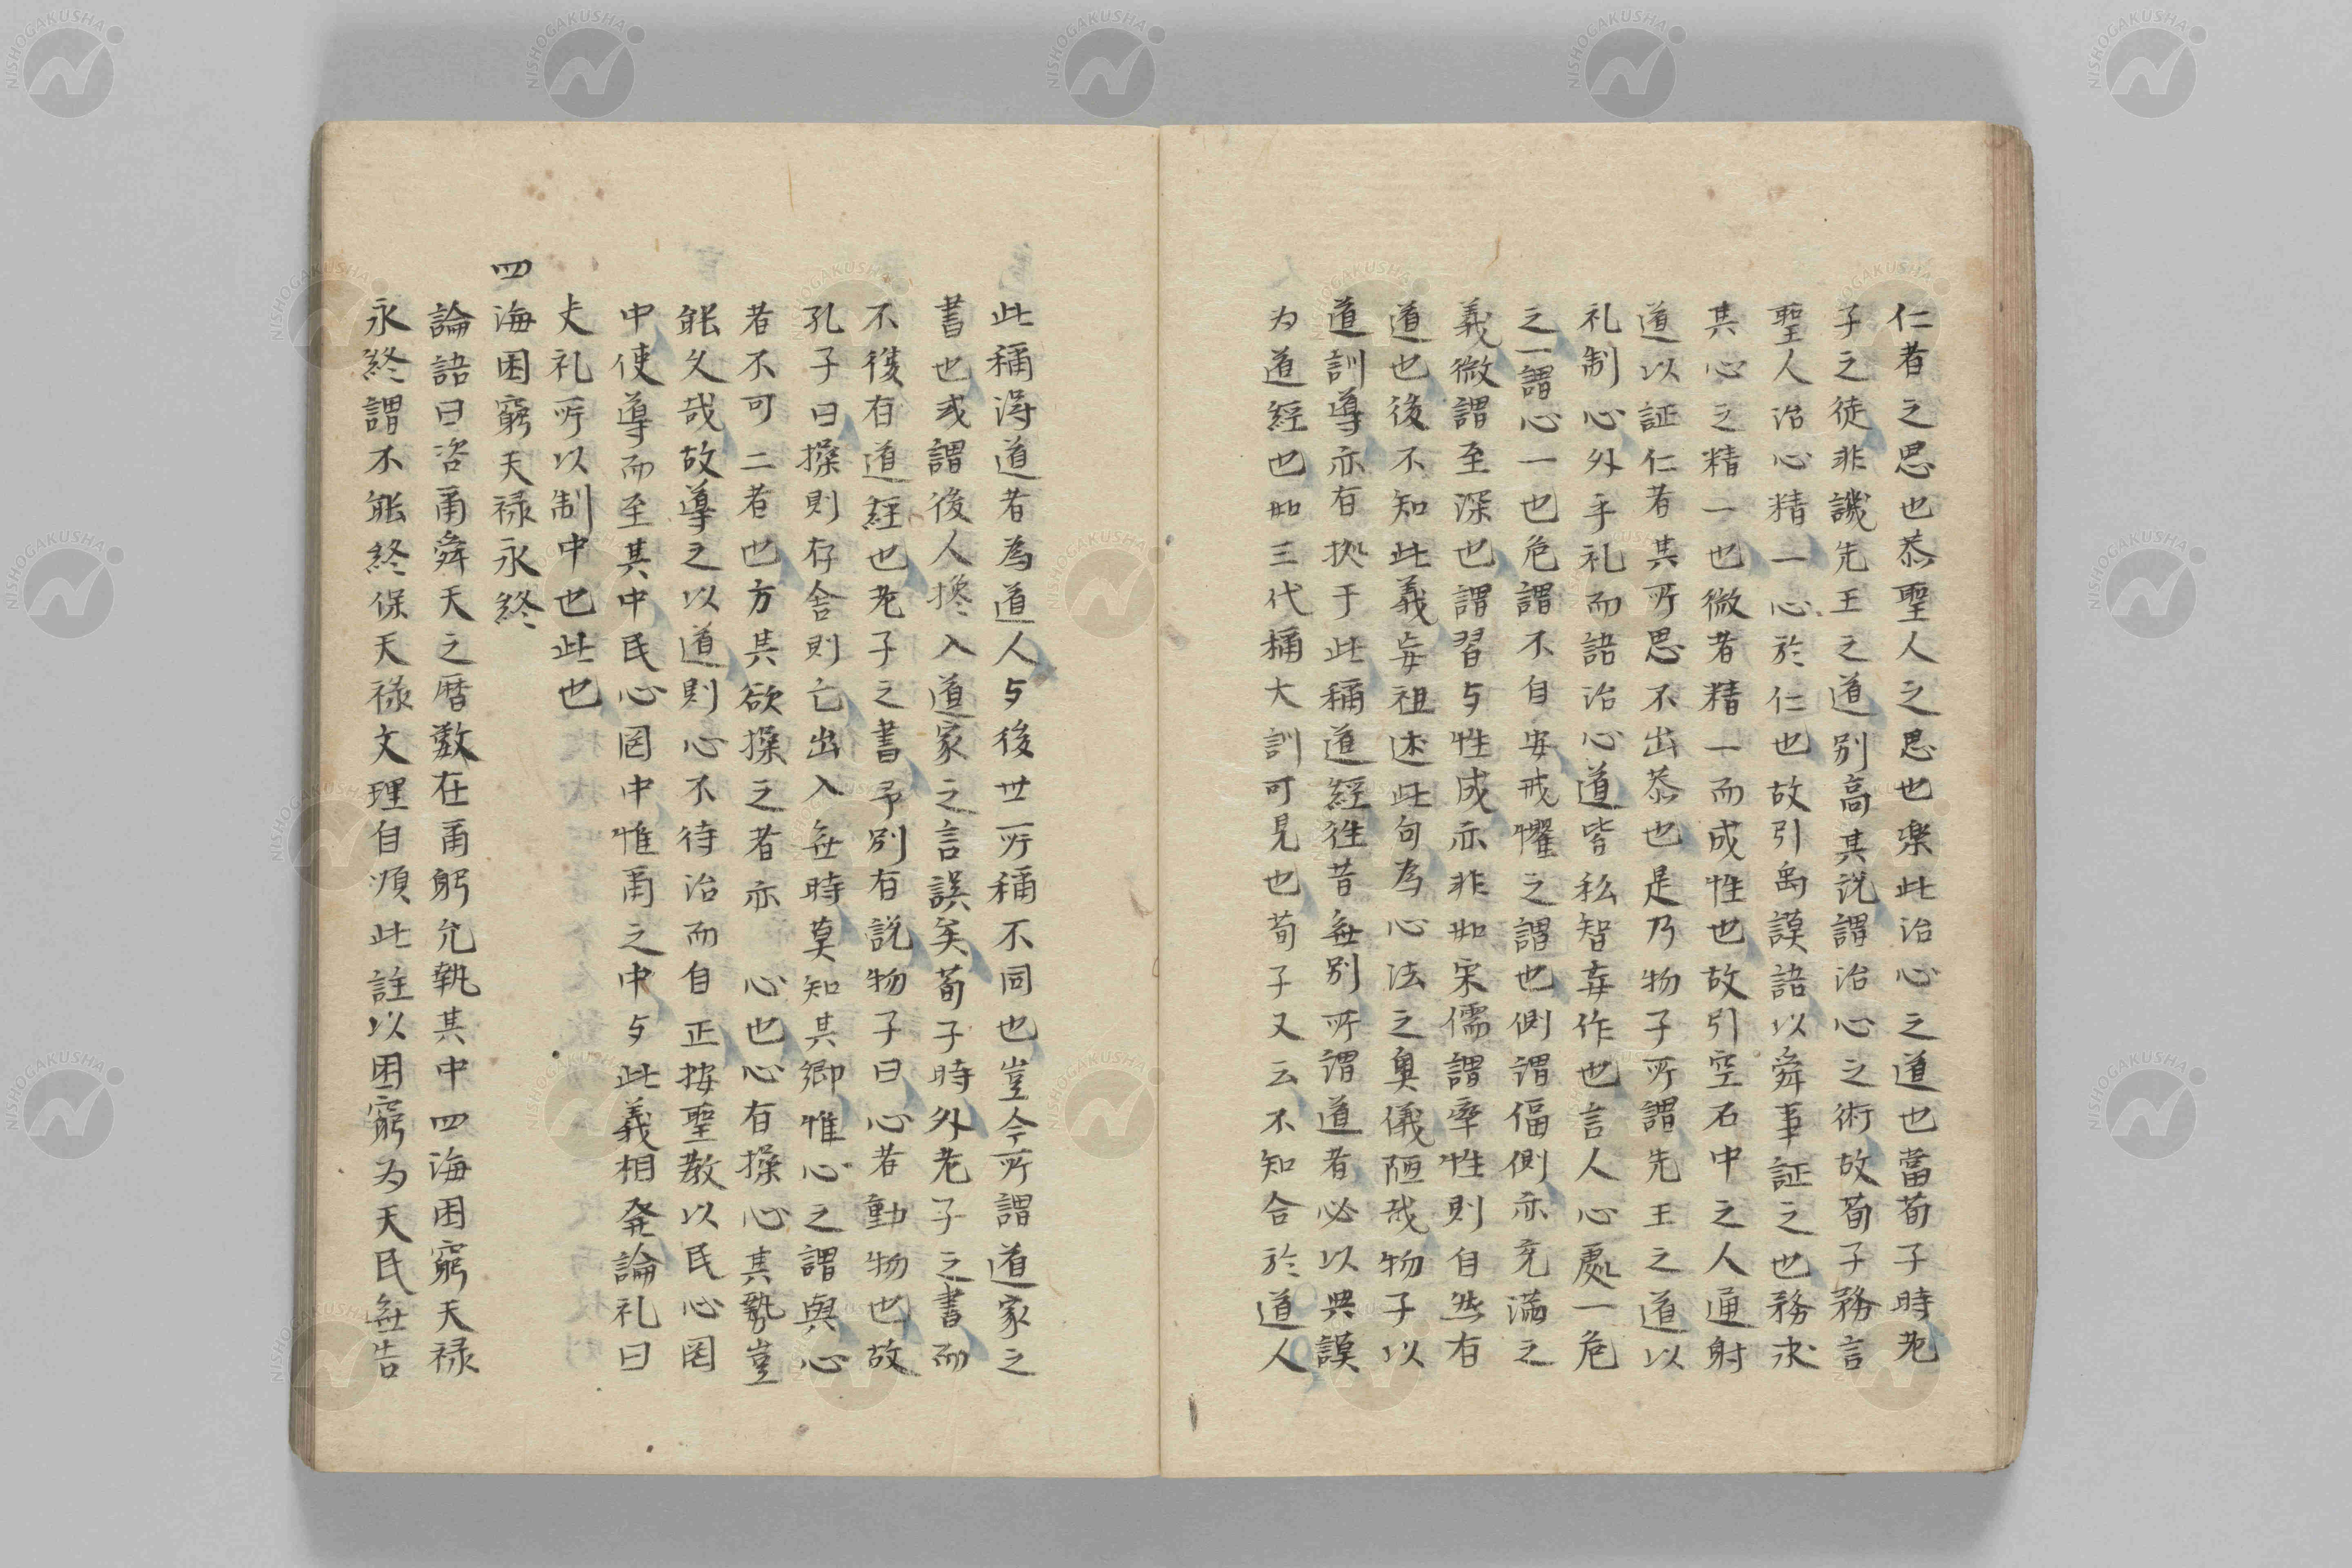 仁者之思也恭聖人之思也楽此治心之道也當荀子時老
子之徒非譏先王之道別高其説謂治心之術故荀子務言
聖人治心精一心於仁也故引禹謨語以舜事証之也務決
其心之精一也微者精一而成性也故引空石中之人通射
道以証仁者其所思不出恭也是乃物子所謂先王之道以
礼制心外乎礼而語治心道皆私智妄作也言人心處一危
之一謂心一也危謂不自安戒懼之謂也側謂偪側亦充満之
義微謂至深也謂習与性成亦非如宋儒謂率性則自然有
道也後不知此義妄祖述此句為心法之奥儀陋哉物子以
道訓導亦有拠于此稱道経徃昔無別所謂道者必以典謨
为道経也如三代稱大訓可見也荀子又云不知合於道人
此稱得道者為道人与後世所稱不同也豈今所謂道家之
書也或謂後人攙入道家之言誤矣荀子時外老子之書而
不復有道経也老子之書予別有説物子曰心者動物也故
孔子曰操則存舎則亡出入無時莫知其郷惟心之謂與心
者不可二者也方其欲操之者亦 心也心有操心其勢豈
能久哉故導之以道則心不待治而自正按聖教以民心罔
中使導而至其中民心罔中惟甬之中与此義相発論礼曰
夫礼所以制中也此也
四海困窮天禄永終
論語曰咨甬舜天之暦數在甬躬允執其中四海困窮天禄
永終謂不能終保天禄文理自順此註以困窮为天民無告
NISHOGAKUSHA